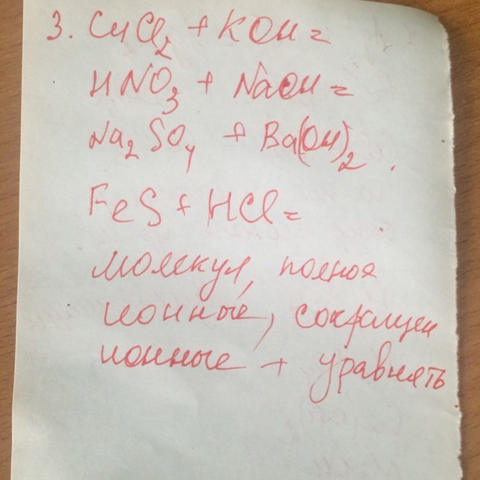 3. CuCl2 + KOH =
HNO3 + NaOH =
Na2SO4 + Ba(OH)2.
FeS + HCl =
молекул, полная
ионные, сокращен
ионные + уравнять